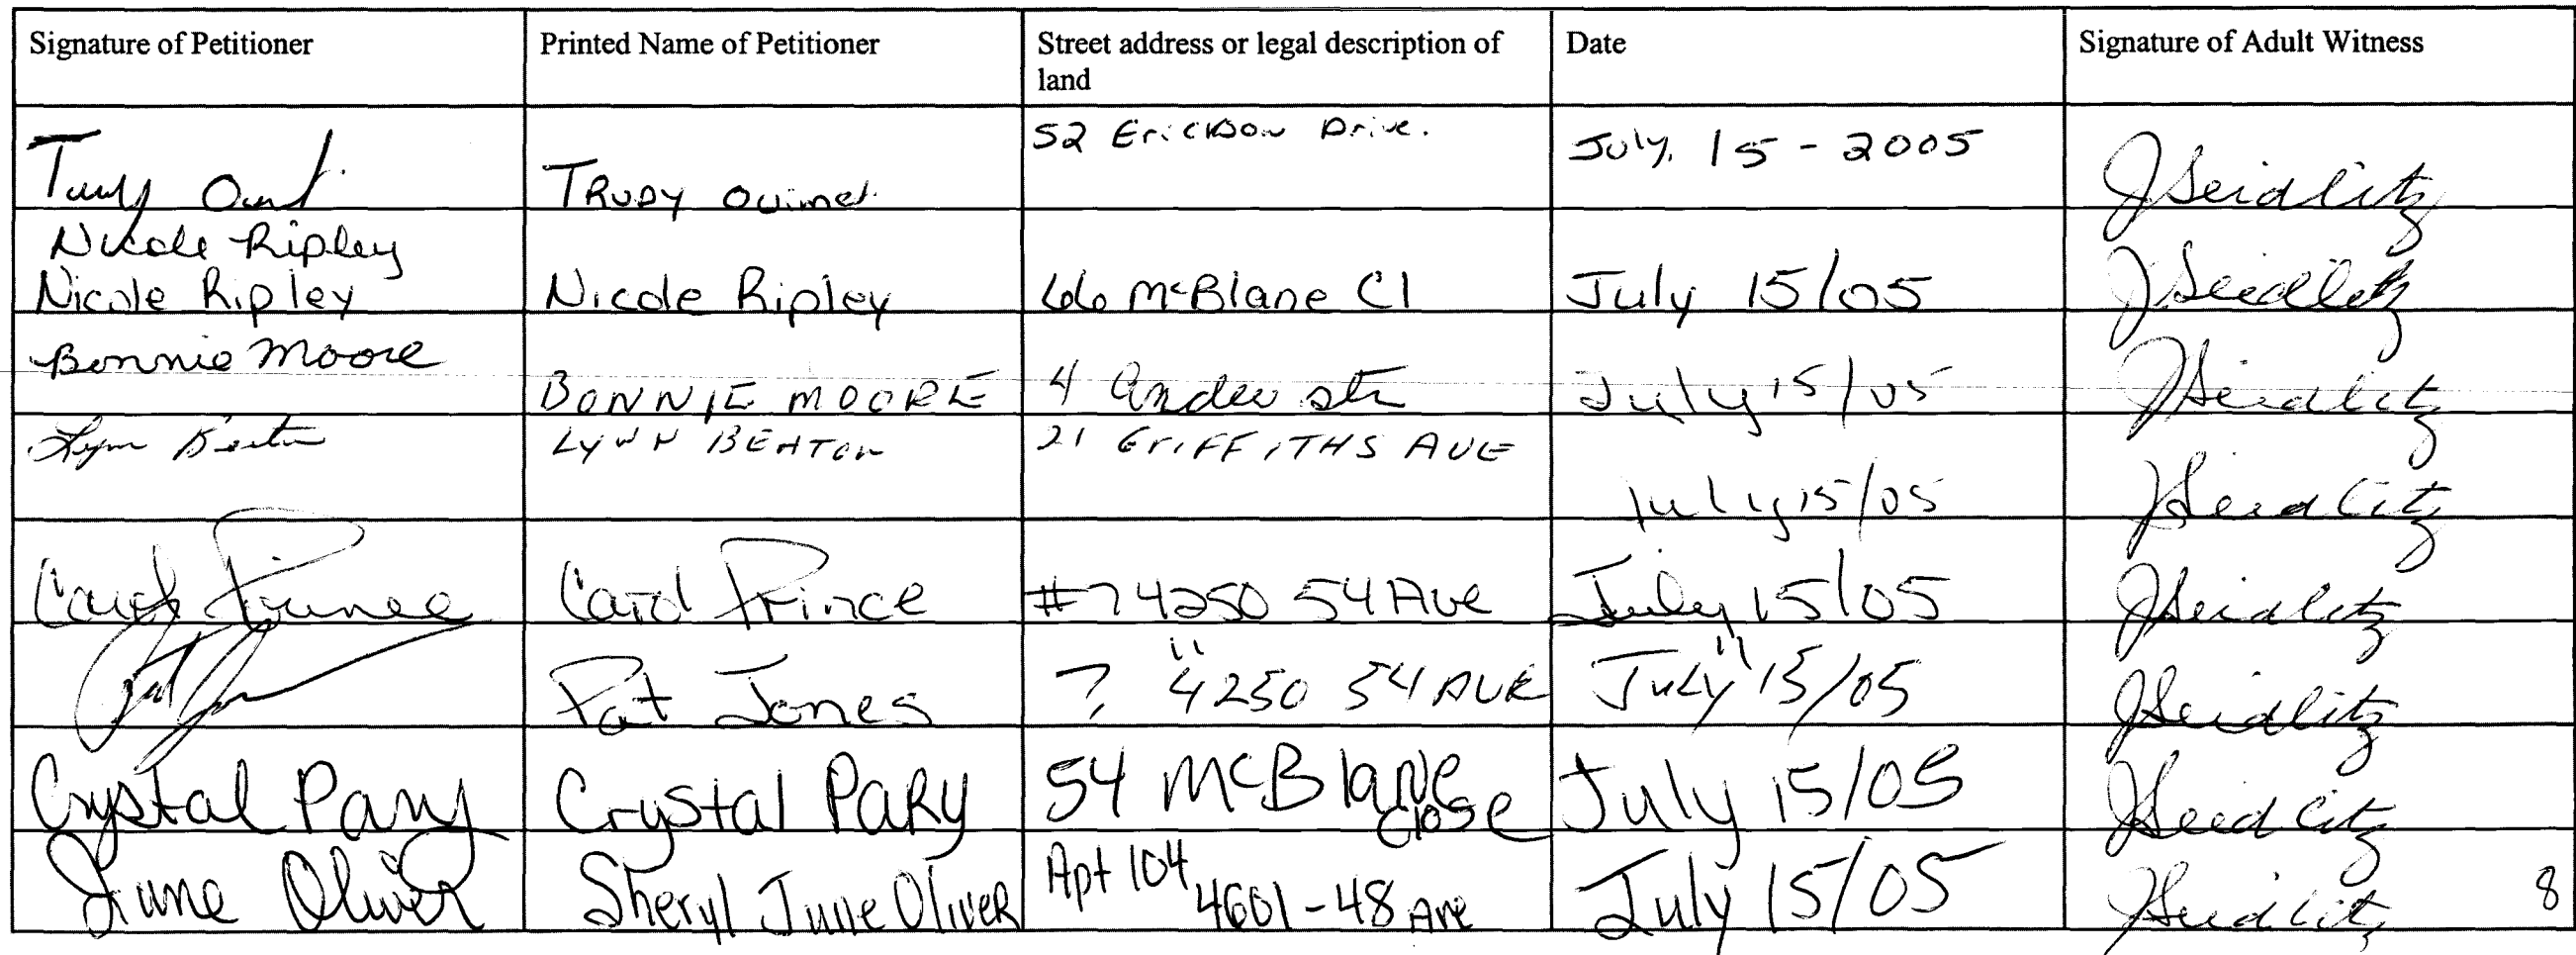 Signature of Petitioner Printed Name of Petitioner Street address or legal description of Date Signature of Adult Witness
land
52 Erickson Drive. July. 15 - 2005
TRUDY Ouimet. JSeidlitz
Nicole Ripley
Nicole Ripley Nicole Ripley 66 McBlane Cl July 15/05 JSeidlitz
Bonnie Moore
BONNIE MOORE 4 Ander str July 15/05 JSeidlitz
Lynn Beaton LYNN BEATON 21 GrIFFITHS AVE
July 15/05 JSeidlitz
Carol Prince Carol Prince #7 4250 54 Ave July 15/05 JSeidlitz
" "
Pat Jones Pat Jones 7 4250 54 AVE July 15/05 JSeidlitz
Crystal Pary Crystal PaRy 54 McBlane July 15/05 JSeidlitz
close
June Oliver Sheryl June OliveR Apt 104 July 15/05 JSeidlitz 8
4601-48 Ave